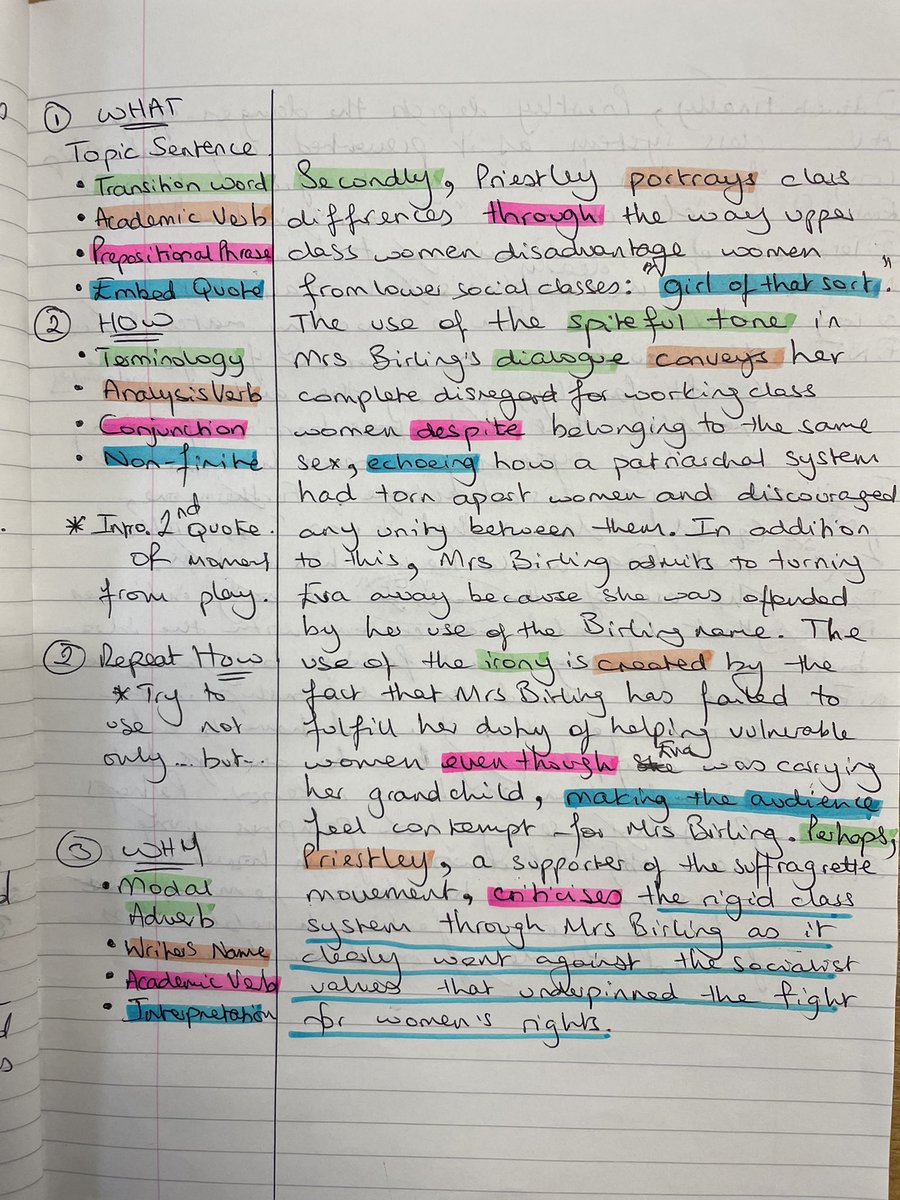 ① WHAT
Topic Sentence
• Transition word Secondly, Priestley portrays class
• Academic Verb diffrences through the way upper
• Prepositional Phrase class women disadvantage women
• Embed Quote from lower social classes: "girl of that sort".
② HOW The use of the spiteful tone in
• Terminology Mrs Birling's dialogue conveys her
• Analysis Verb complete disregard for working class
• Conjunction women despite belonging to the same
• Non-finite sex, echoeing how a patriarchal system
had torn apart women and discouraged
* Intro. 2nd Quote. any unity between them. In addition
Of moment to this, Mrs Birling admits to turning
from play. Eva away because she was offended
by her use of the Birling name. The
② Repeat How use of the irony is created by the
* Try to fact that Mrs Birling has failed to
use not fulfill her duty of helping vulnerable
only... but... women even though Eva was carrying
her grandchild, making the audience
feel contempt for Mrs Birling. Perhaps,
③ WHY Priestley, a supporter of the suffragrette
• Modal movement, criticises the rigid class
Adverb system through Mrs Birling as it
• Writers Name clearly went against the socialist
• Academic Verb values that underpinned the fight
• Interpretation for women's rights.